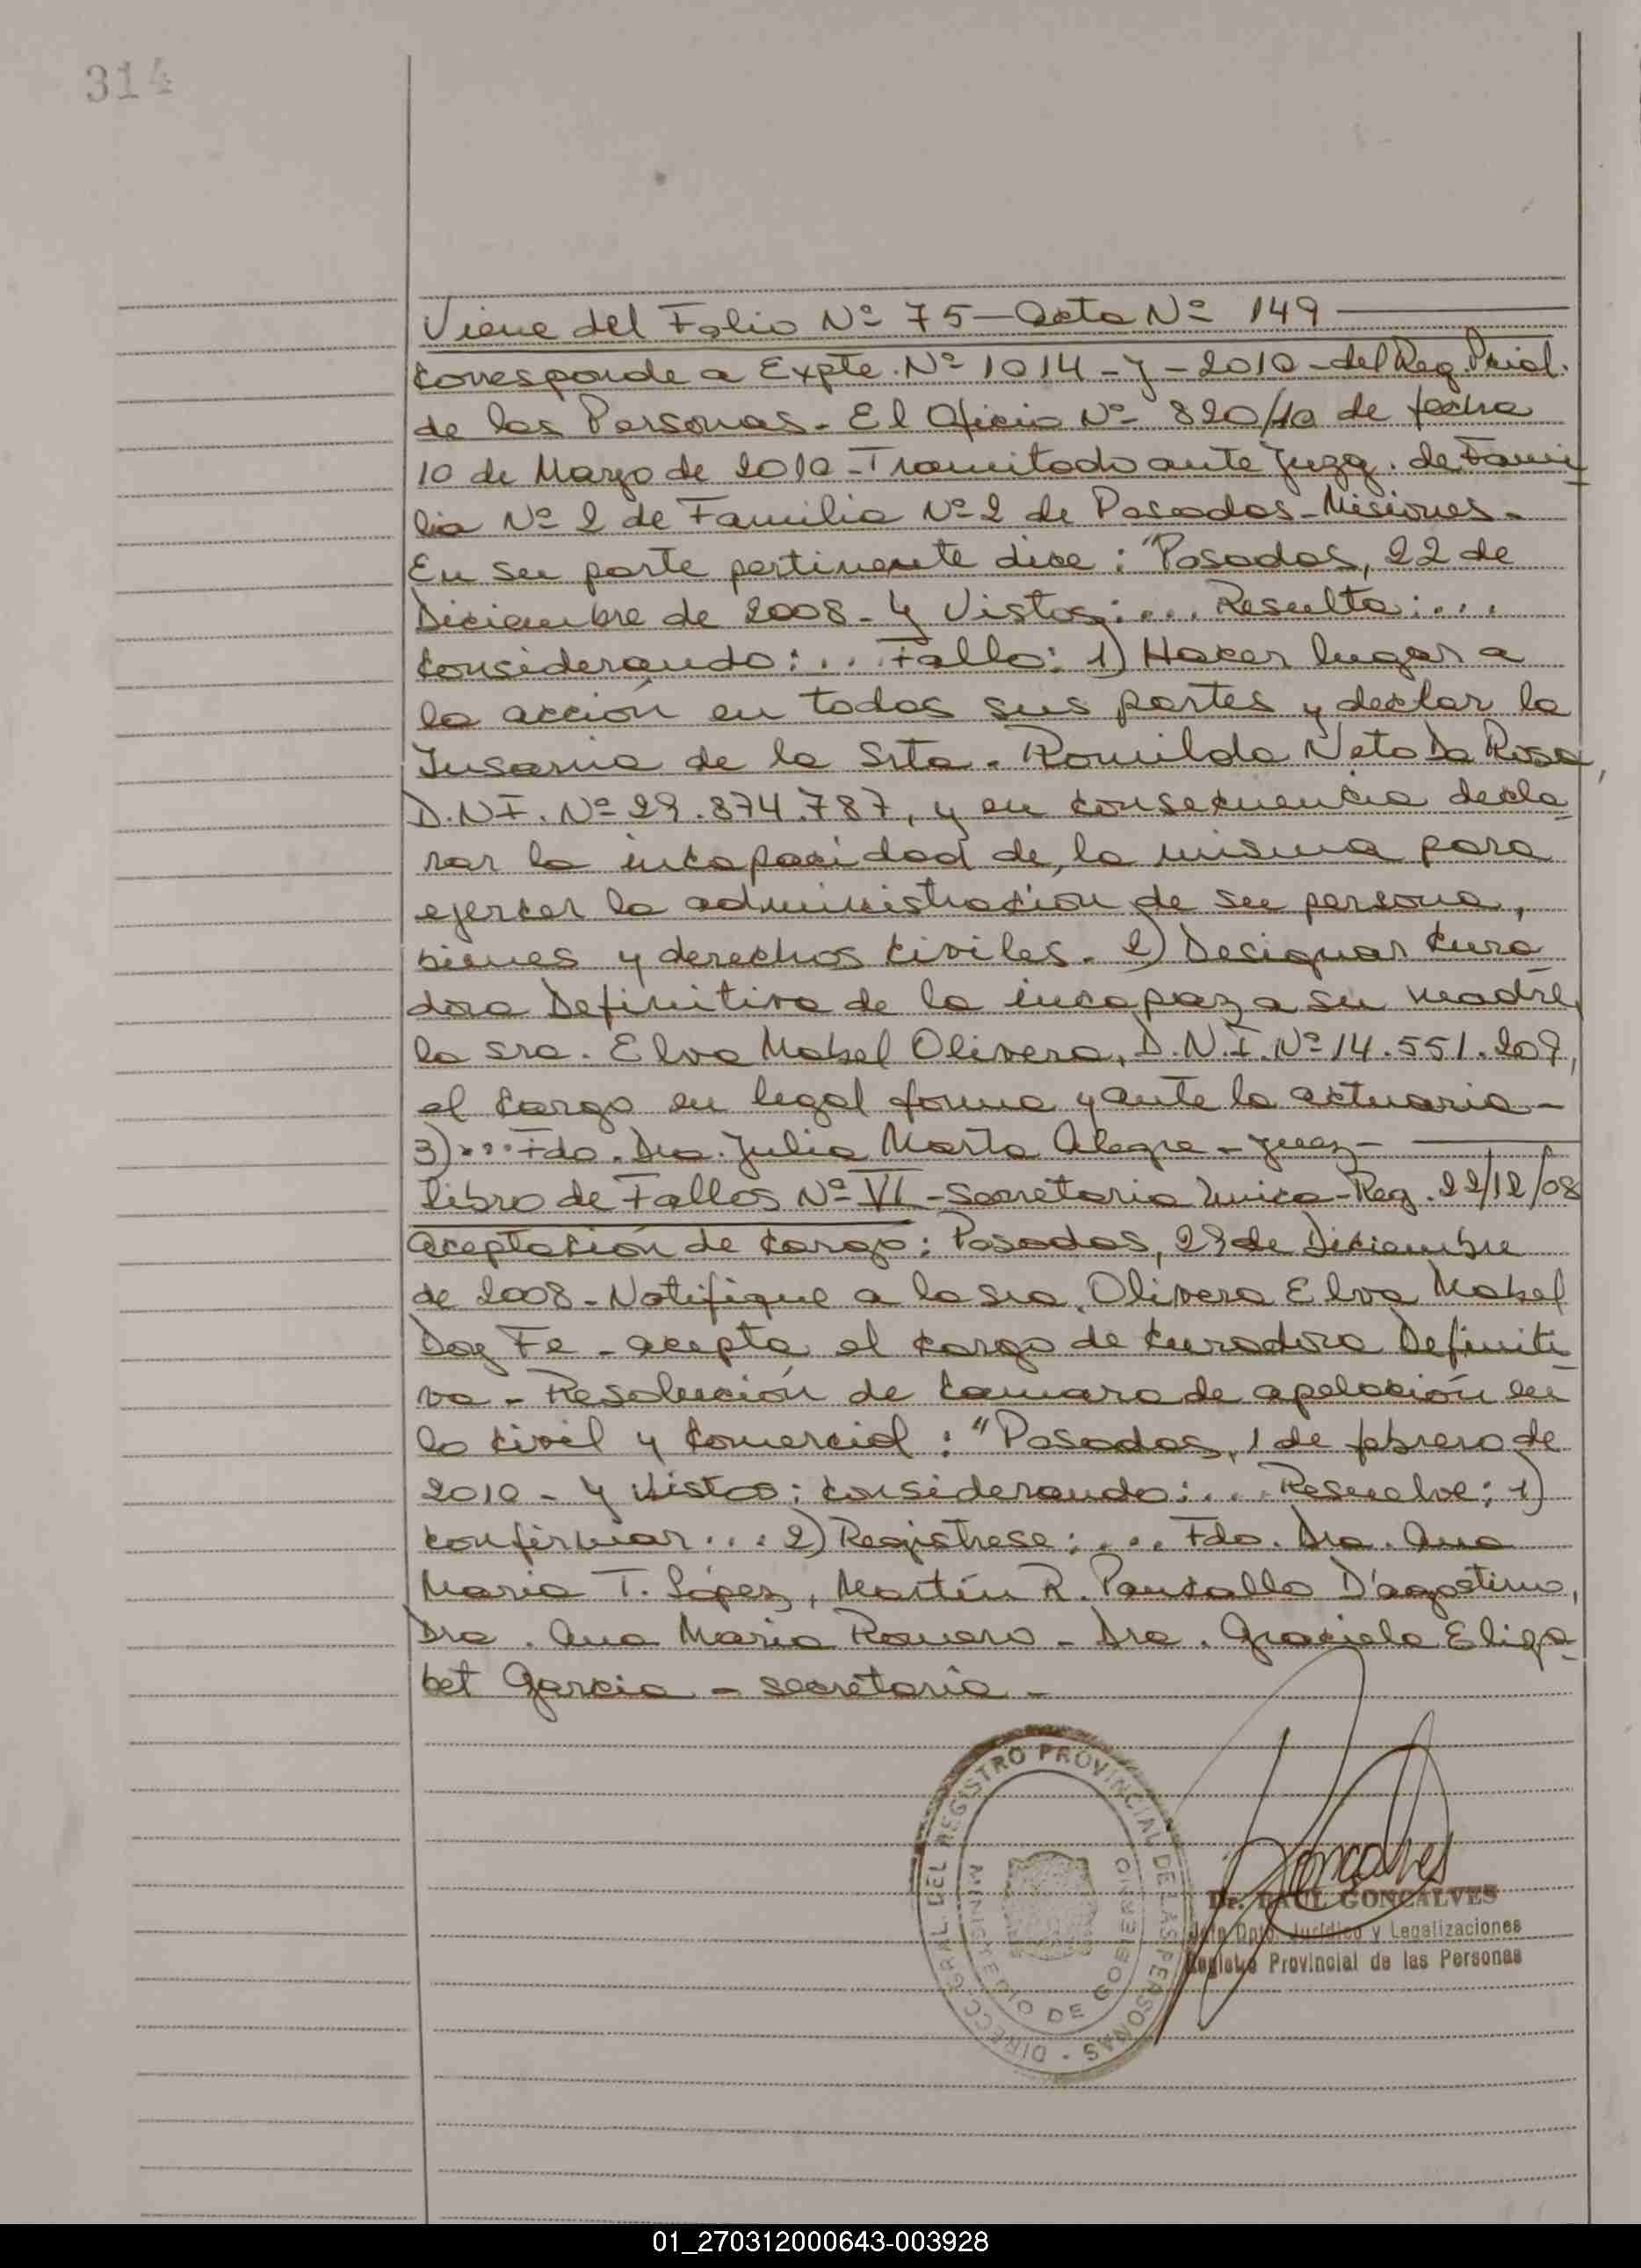 314
Viene del Folio Nº 75 - Acta Nº 149
corresponde a Expte. Nº 1014 - Y - 2010 - del Reg. Pcial.
de las Personas - El Oficio Nº 820/10 de fecha
10 de Marzo de 2010 - Tramitado ante Juzg. de Fami
lia Nº 2 de Familia Nº 2 de Posadas - Misiones -
En su parte pertinente dice: "Posadas, 22 de
Diciembre de 2008 - Y Vistos: ... Resulta: ...
Considerando: ... Fallo: 1) Hacer lugar a
la acción en todas sus partes y declar la
Insania de la Srta. Romilda Neto Da Rosa,
D.N.I. Nº 29.874.787, y en consecuencia decla
rar la incapacidad de la misma para
ejercer la administracion de su persona,
bienes y derechos civiles. 2) Designar Cura
dora Definitiva de la incapaz a su madre,
la sra. Elva Mabel Olivera, D.N.I. Nº 14.551.209,
el cargo en legal forma y ante la actuaria -
3) ... Fdo. Dra. Julia Marta Alegre - Juez -
Libro de Fallos Nº VI - Secretaria Unica - Reg. 22/12/08
Aceptación de Cargo: Posadas, 29 de Diciembre
de 2008 - Notifique a la sra. Olivera Elva Mabel
Doy Fe - acepta el cargo de Curadora Definiti
va - Resolución de Camara de apelación en
lo Civil y Comercial: "Posadas, 1 de febrero de
2010 - Y Vistos: Considerando: ... Resuelve: 1)
confirmar ... 2) Registrese: ... Fdo. Dra. Ana
Maria T. López, Martín R. D'agostino,
Dra. Ana Maria Romero - Dra. Graciela Eliza
bet Garcia - secretaria -
DIRECC. GRAL. DEL REGISTRO PROVINCIAL DE LAS PERSONAS -
MINISTERIO DE GOBIERNO
Goncalves
Dr. RAUL GONCALVES
Jefe Dpto. Jurídico y Legalizaciones
Registro Provincial de las Personas
01_270312000643-003928